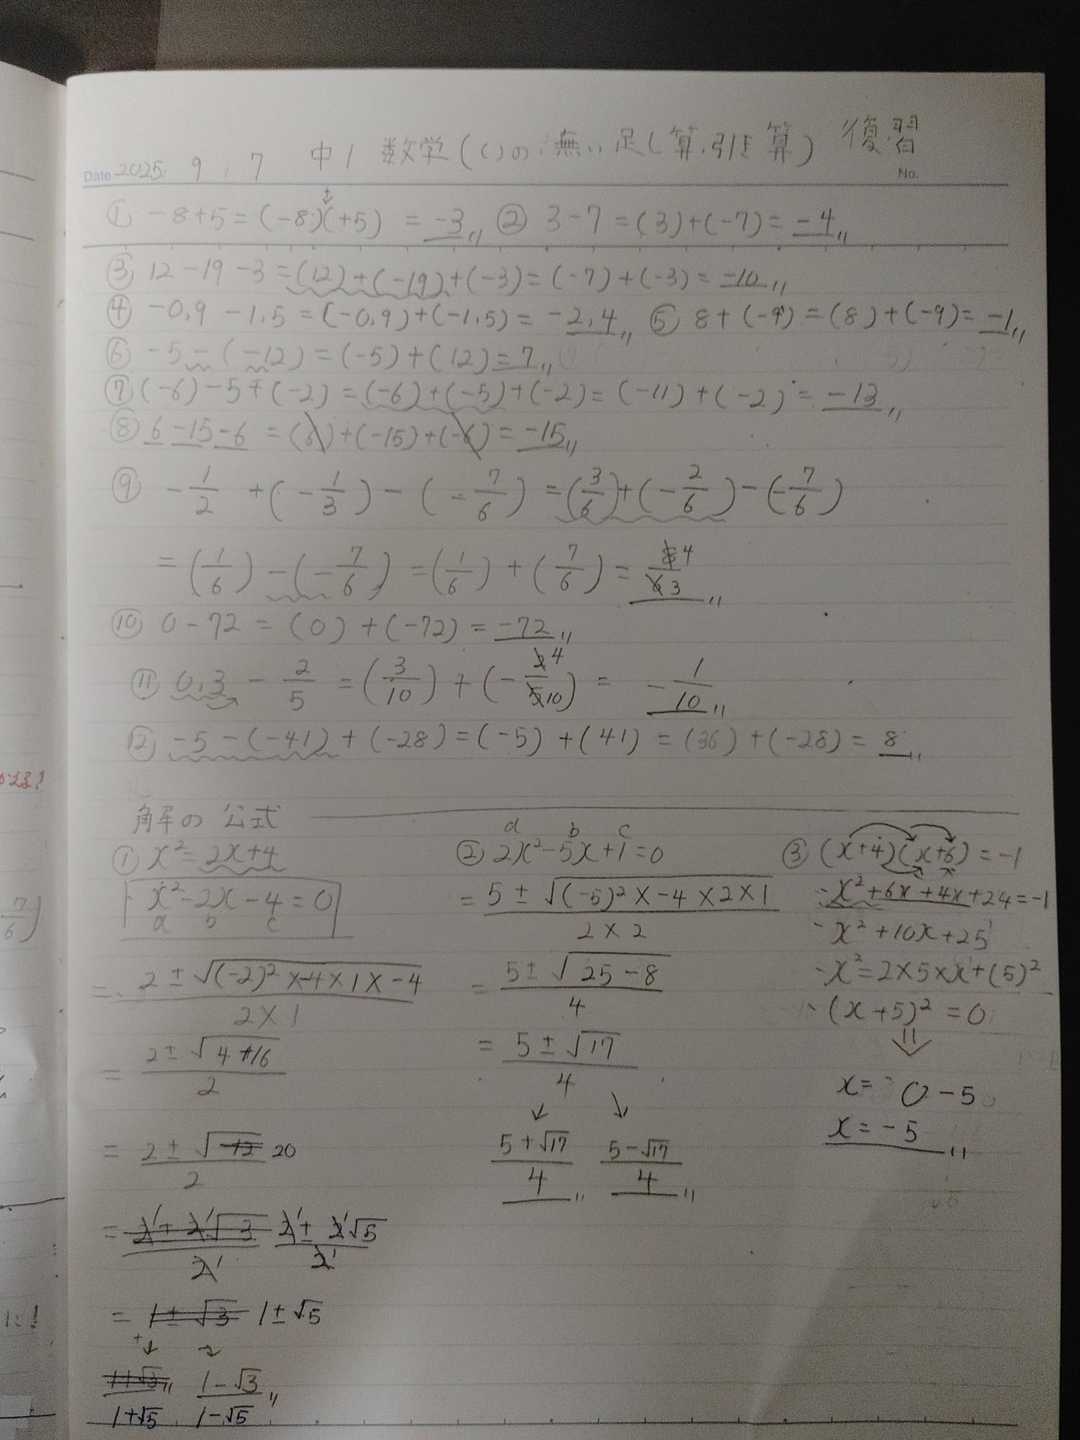 Date 2025. 9. 7 中1 数学(()の無い足し算.引き算) 復習
No.
① -8+5=(-8)(+5) = -3 ② 3-7=(3)+(-7)= -4
+
③ 12-19-3=(12)+(-19)+(-3)=(-7)+(-3)= -10
④ -0.9 -1.5 =(-0.9)+(-1.5)= -2.4 ⑤ 8+(-9)=(8)+(-9)= -1
⑥ -5-(-12)=(-5)+(12)= 7
⑦ (-6)-5+(-2)=(-6)+(-5)+(-2)=(-11)+(-2)= -13
⑧ 6-15-6 =(6)+(-15)+(-6)= -15
⑨ -1/2 +(-1/3)-(-7/6)=(3/6)+(-2/6)-(-7/6)
=(1/6)-(-7/6)=(1/6)+(7/6)= 8/6 4/3
⑩ 0-72 =(0)+(-72)= -72
⑪ 0.3 - 2/5 =(3/10)+(-2/5 4/10)= -1/10
⑫ -5-(-41)+(-28)=(-5)+(41)=(36)+(-28)= 8
解の公式
① x²=2x+4
x²-2x-4=0
a b c
= 2±√(-2)²×-4×1×-4 / 2×1
= 2±√4+16 / 2
= 2±√-12 20 / 2
= 2±2√3 / 2 2±2√5 / 2
= 1±√3 1±√5
1+√3 1-√3
1+√5 1-√5
a b c
② 2x²-5x+1=0
= 5±√(-5)²×-4×2×1 / 2×2
= 5±√25-8 / 4
= 5±√17 / 4
5+√17 / 4 5-√17 / 4
③ (x+4)(x+6)=-1
x²+6x+4x+24=-1
x²+10x+25
x²=2×5×x+(5)²
(x+5)²=0
x= 0-5
x=-5
7/6)